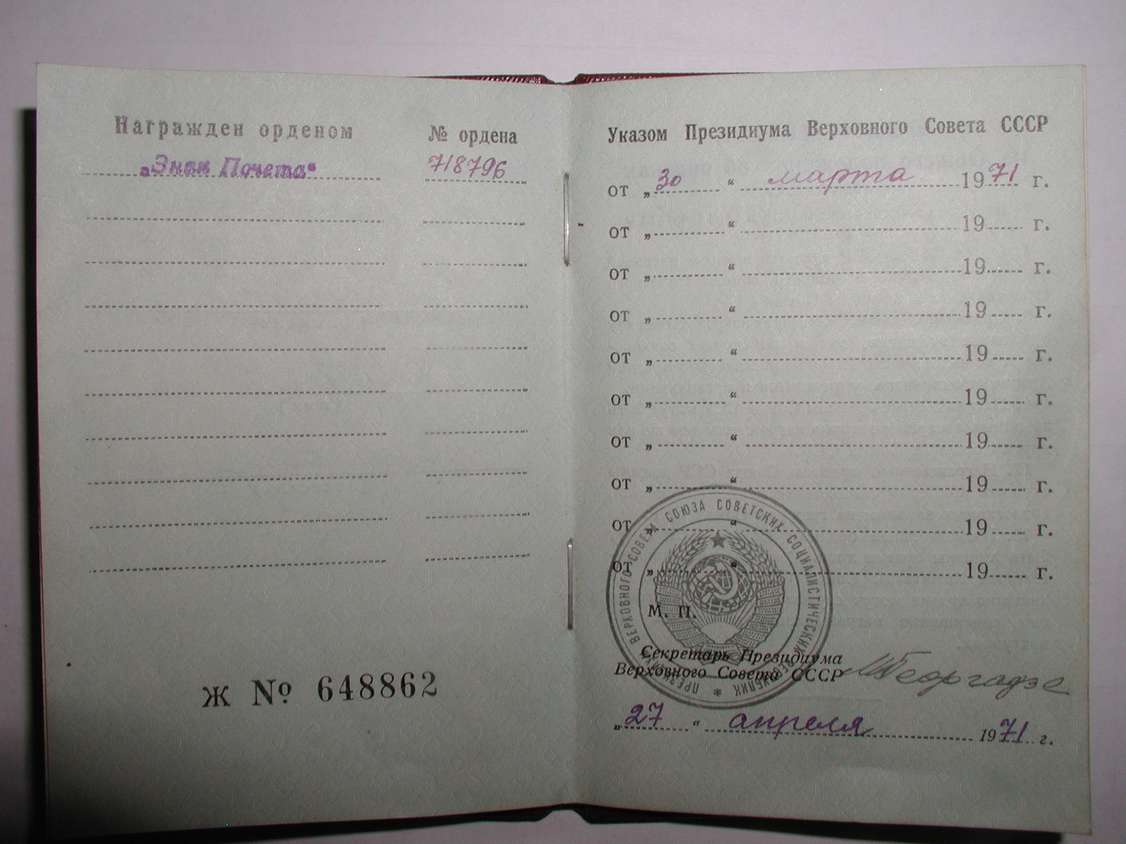 Награжден орденом
№ ордена
„Знак Почета“
718796
Ж № 648862
Указом Президиума Верховного Совета СССР
от „30“ марта 1971 г.
от „ “ 19 г.
от „ “ 19 г.
от „ “ 19 г.
от „ “ 19 г.
от „ “ 19 г.
от „ “ 19 г.
от „ “ 19 г.
от „ “ 19 г.
от „ “ 19 г.
ПРЕЗИДИУМ ВЕРХОВНОГО СОВЕТА СОЮЗА СОВЕТСКИХ СОЦИАЛИСТИЧЕСКИХ РЕСПУБЛИК *
М. П.
Секретарь Президиума
Верховного Совета СССР
МГеоргадзе
„27“ апреля 1971 г.